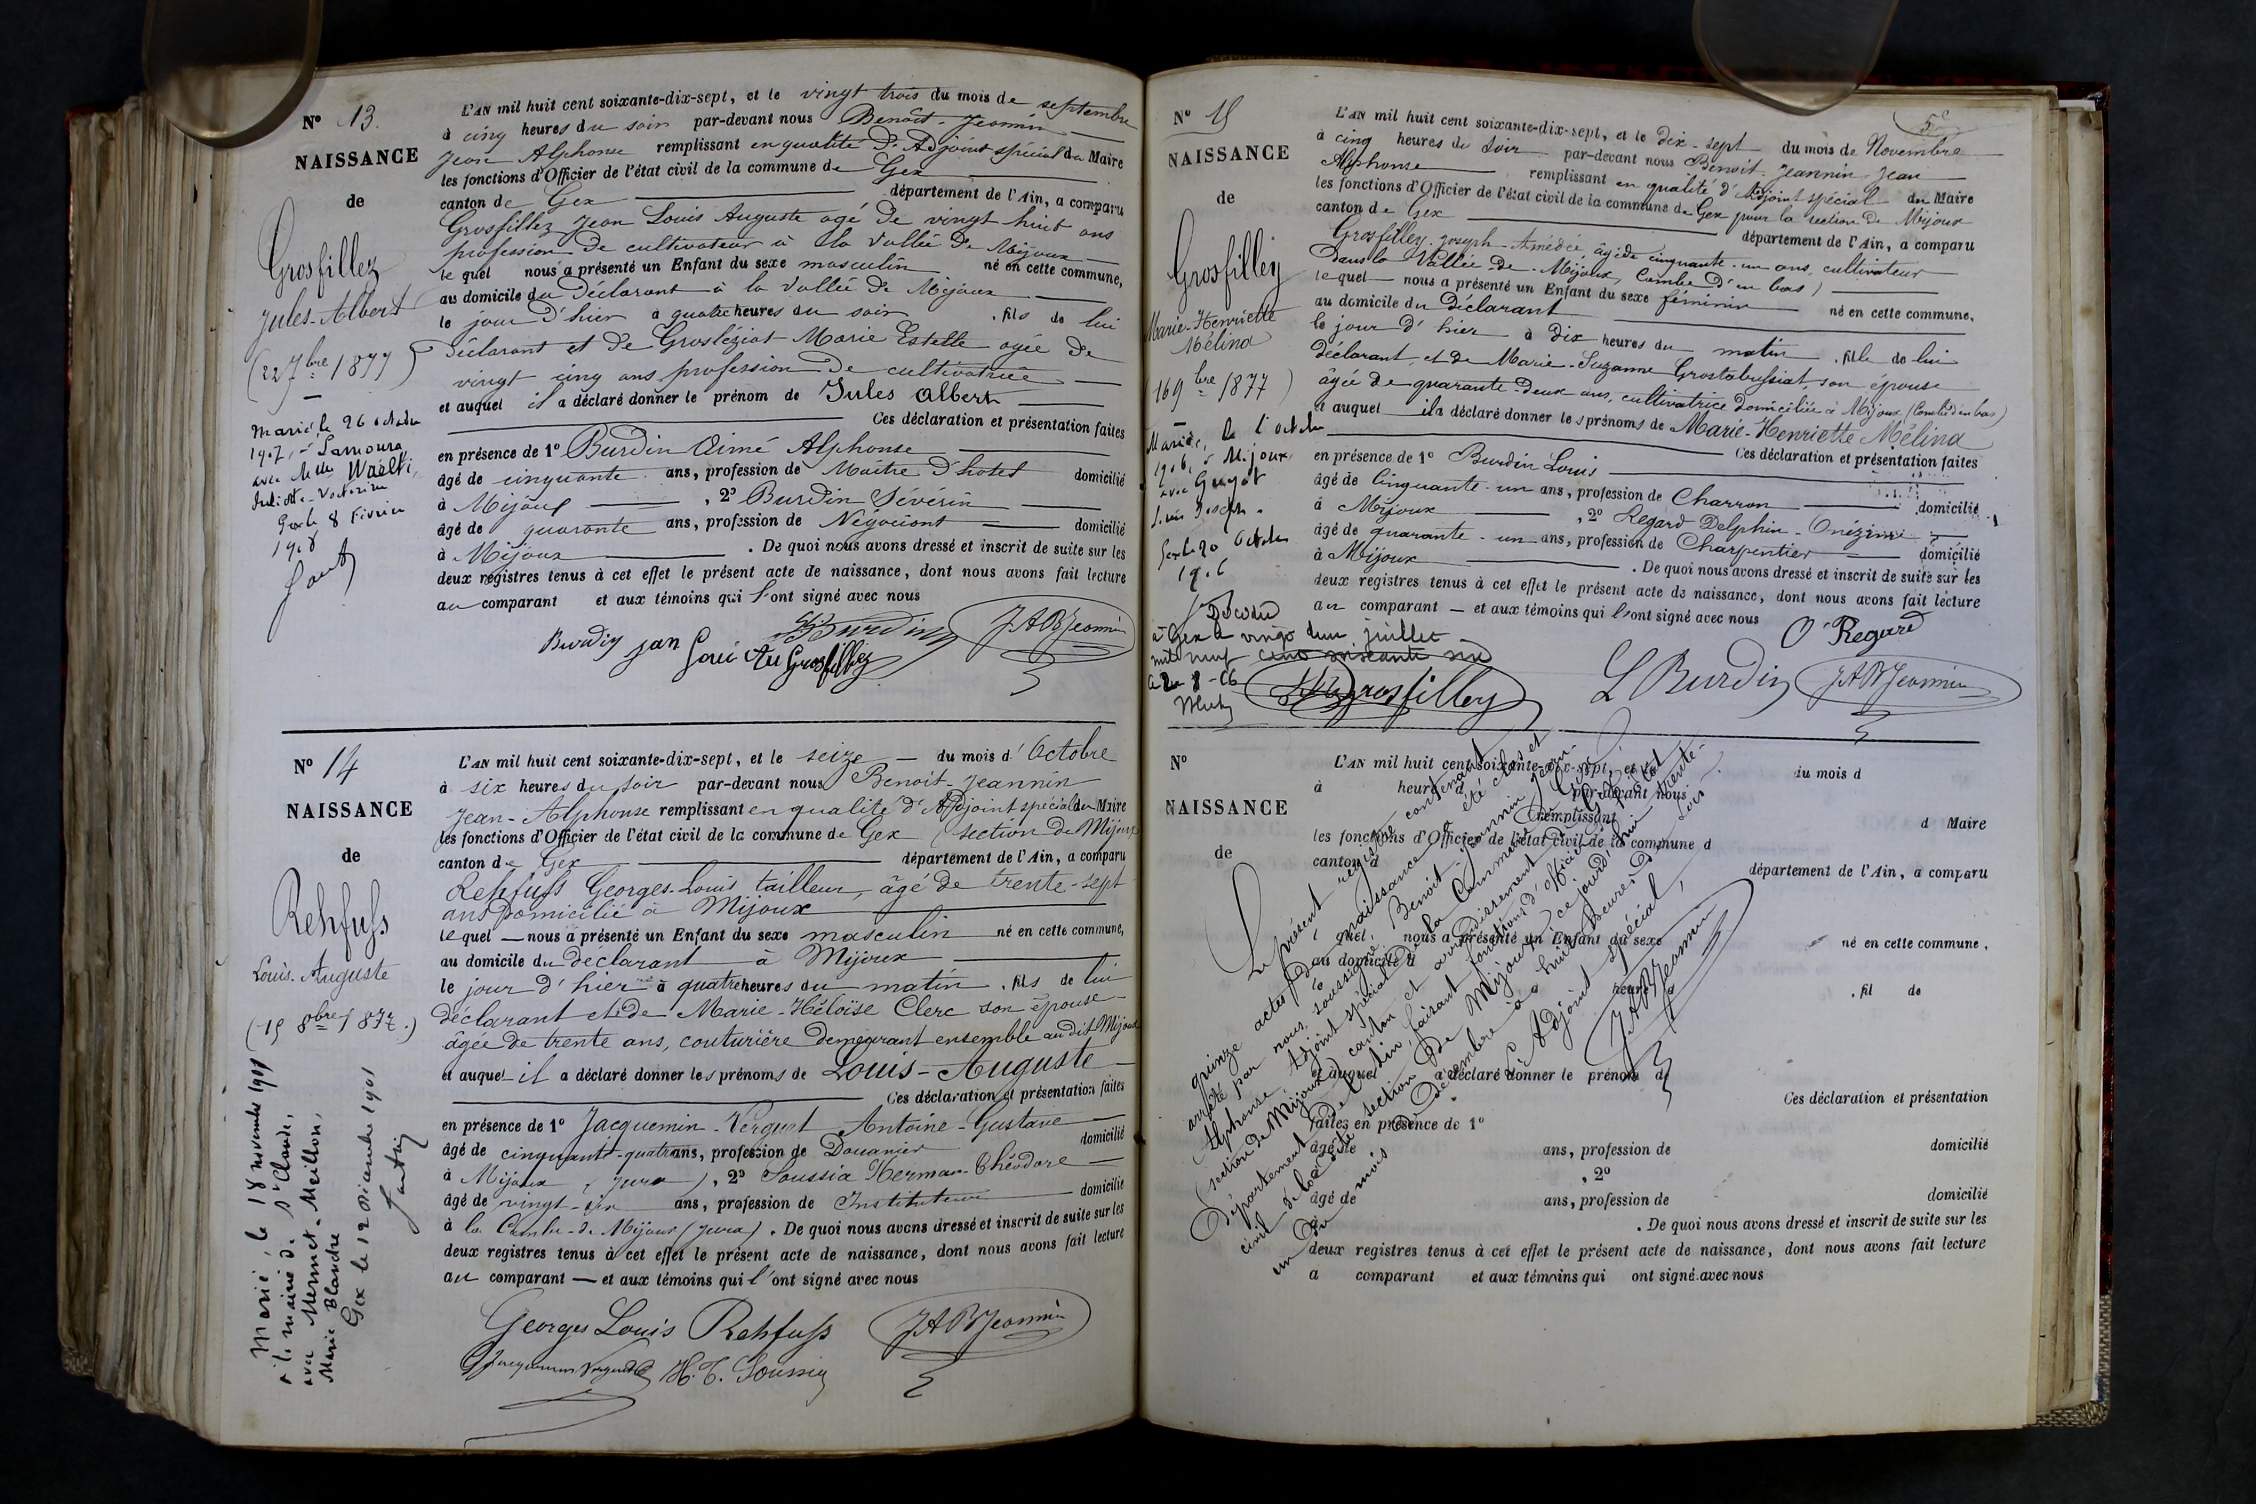 N° 13.
NAISSANCE
de
Grosfillez
Jules-Albert
(22 7bre 1877)
Marié le 26 octobre
1907, à Lamoura
avec Melle Waëlti,
Juliette-Victorine
Gex le 8 Février
1908
L'AN mil huit cent soixante-dix-sept, et le vingt trois du mois de septembre
à cinq heures du soir par-devant nous Benoit-Jeannin
Jean Alphonse remplissant en qualité d'Adjoint spécial du Maire
les fonctions d'Officier de l'état civil de la commune de Gex
canton de Gex département de l'Ain, a comparu
Grosfillez Jean Louis Auguste agé de vingt huit ans
profession de cultivateur à la vallée de Mijoux
le quel nous a présenté un Enfant du sexe masculin né en cette commune,
au domicile du Déclarant à la vallée de Mijoux
le jour d'hier à quatre heures du soir, fils de lui
déclarant et de Grosléziat Marie Estelle agée de
vingt cinq ans profession de cultivatrice
et auquel il a déclaré donner le prénom de Jules Albert
Ces déclaration et présentation faites
en présence de 1° Burdin Aimé Alphonse
âgé de cinquante ans, profession de Maître d'hotel domicilié
à Mijoux, 2° Burdin Sévérin
âgé de quarante ans, profession de Négociant domicilié
à Mijoux. De quoi nous avons dressé et inscrit de suite sur les
deux registres tenus à cet effet le présent acte de naissance, dont nous avons fait lecture
au comparant et aux témoins qui l'ont signé avec nous
Burdin
J A B Jeannin
N° 14
NAISSANCE
de
Rehfuss
Louis-Auguste
(15 8bre 1877.)
Marié, le 18 novembre 1901
à la mairie de St Claude,
avec Mermet-Meillon,
Marie Blandre
Gex le 12 Décembre 1901
L'AN mil huit cent soixante-dix-sept, et le seize du mois d'Octobre
à six heures du soir par-devant nous Benoit-Jeannin
Jean-Alphonse remplissant en qualité d'Adjoint spécial du Maire
les fonctions d'Officier de l'état civil de la commune de Gex (section de Mijoux
canton de Gex département de l'Ain, a comparu
Rehfuss Georges-Louis, tailleur, âgé de trente-sept
ans domicilié à Mijoux
le quel nous a présenté un Enfant du sexe masculin né en cette commune,
au domicile du déclarant à Mijoux
le jour d'hier à quatre heures du matin, fils de lui
déclarant et de Marie-Héloïse Clerc son épouse
âgée de trente ans, couturière demeurant ensemble au dit Mijoux
et auquel il a déclaré donner les prénoms de Louis-Auguste
Ces déclaration et présentation faites
en présence de 1° Jacquemin-Verguet Antoine-Gustave
âgé de cinquante-quatre ans, profession de Douanier domicilié
à Mijoux (Jura), 2° Soussia Herman-Théodore
âgé de vingt-six ans, profession de Instituteur domicilié
à la Combe-de Mijoux (Jura). De quoi nous avons dressé et inscrit de suite sur les
deux registres tenus à cet effet le présent acte de naissance, dont nous avons fait lecture
au comparant et aux témoins qui l'ont signé avec nous
Georges Louis Rehfuss
J A B Jeannin
Jacquemin Verguet H. T. Soussia
5e
N° 15
NAISSANCE
de
Grosfilley
Marie-Henriette
Mélina
(16 9bre 1877)
Mariée, le 6 octobre
1906, à Mijoux
avec Guyot
Gex le 20 octobre
1906
Décédée
à Gex le vingt deux juillet
mil neuf cent soixante six
L'AN mil huit cent soixante-dix-sept, et le Dix-sept du mois de Novembre
à cinq heures du soir par-devant nous Benoit-Jeannin Jean
Alphonse remplissant en qualité d'Adjoint spécial du Maire
les fonctions d'Officier de l'état civil de la commune de Gex pour la section de Mijoux
canton de Gex département de l'Ain, a comparu
Grosfilley Joseph Amédée, âgé de cinquante-un ans, cultivateur
dans la Vallée-de-Mijoux, (Combe d'en bas)
le quel nous a présenté un Enfant du sexe féminin né en cette commune,
au domicile du déclarant
le jour d'hier à dix heures du matin, fille de lui
déclarant, et de Marie-Suzanne Grostabussiat, son épouse
âgée de quarante-deux ans, cultivatrice domiciliée à Mijoux (Combe d'en bas)
et auquel il a déclaré donner les prénoms de Marie-Henriette Mélina
Ces déclaration et présentation faites
en présence de 1° Burdin Louis
âgé de Cinquante-un ans, profession de Charron domicilié
à Mijoux, 2° Regard Delphin-Onézime
âgé de quarante-un ans, profession de Charpentier domicilié
à Mijoux. De quoi nous avons dressé et inscrit de suite sur les
deux registres tenus à cet effet le présent acte de naissance, dont nous avons fait lecture
au comparant et aux témoins qui l'ont signé avec nous
O Regard
Grosfilley L Burdin J A B Jeannin
N°
NAISSANCE
de
L'AN mil huit cent soixante-dix-sept, et le du mois d
à heures d par-devant nous
remplissant d Maire
les fonctions d'Officier de l'état civil de la commune d
canton d département de l'Ain, a comparu
l quel nous a présenté un Enfant du sexe né en cette commune,
au domicile d
heures d, fil de
et auquel a déclaré donner le prénom d
Ces déclaration et présentation
faites en présence de 1°
âgé de ans, profession de domicilié
, 2°
âgé de ans, profession de domicilié
à. De quoi nous avons dressé et inscrit de suite sur les
deux registres tenus à cet effet le présent acte de naissance, dont nous avons fait lecture
a comparant et aux témoins qui ont signé avec nous
Le présent registre contenant
quinze actes de naissance a été clos et
arrêté par nous, soussigné, Benoit-Jeannin Jean-
Alphonse, Adjoint spécial de la Commune de Gex
(section de Mijoux) canton et arrondissement de Gex
Département de l'Ain, faisant fonctions d'officier de l'état
civil de la dite section de Mijoux, ce jourd'hui trente-
un du mois de Décembre à huit heures du soir
L'Adjoint spécial,
J A B Jeannin